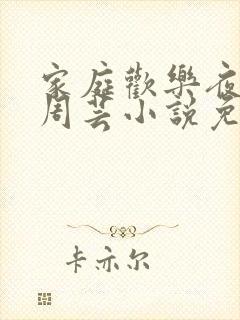 家庭歡樂夜
周芸小說免
卡亦尔